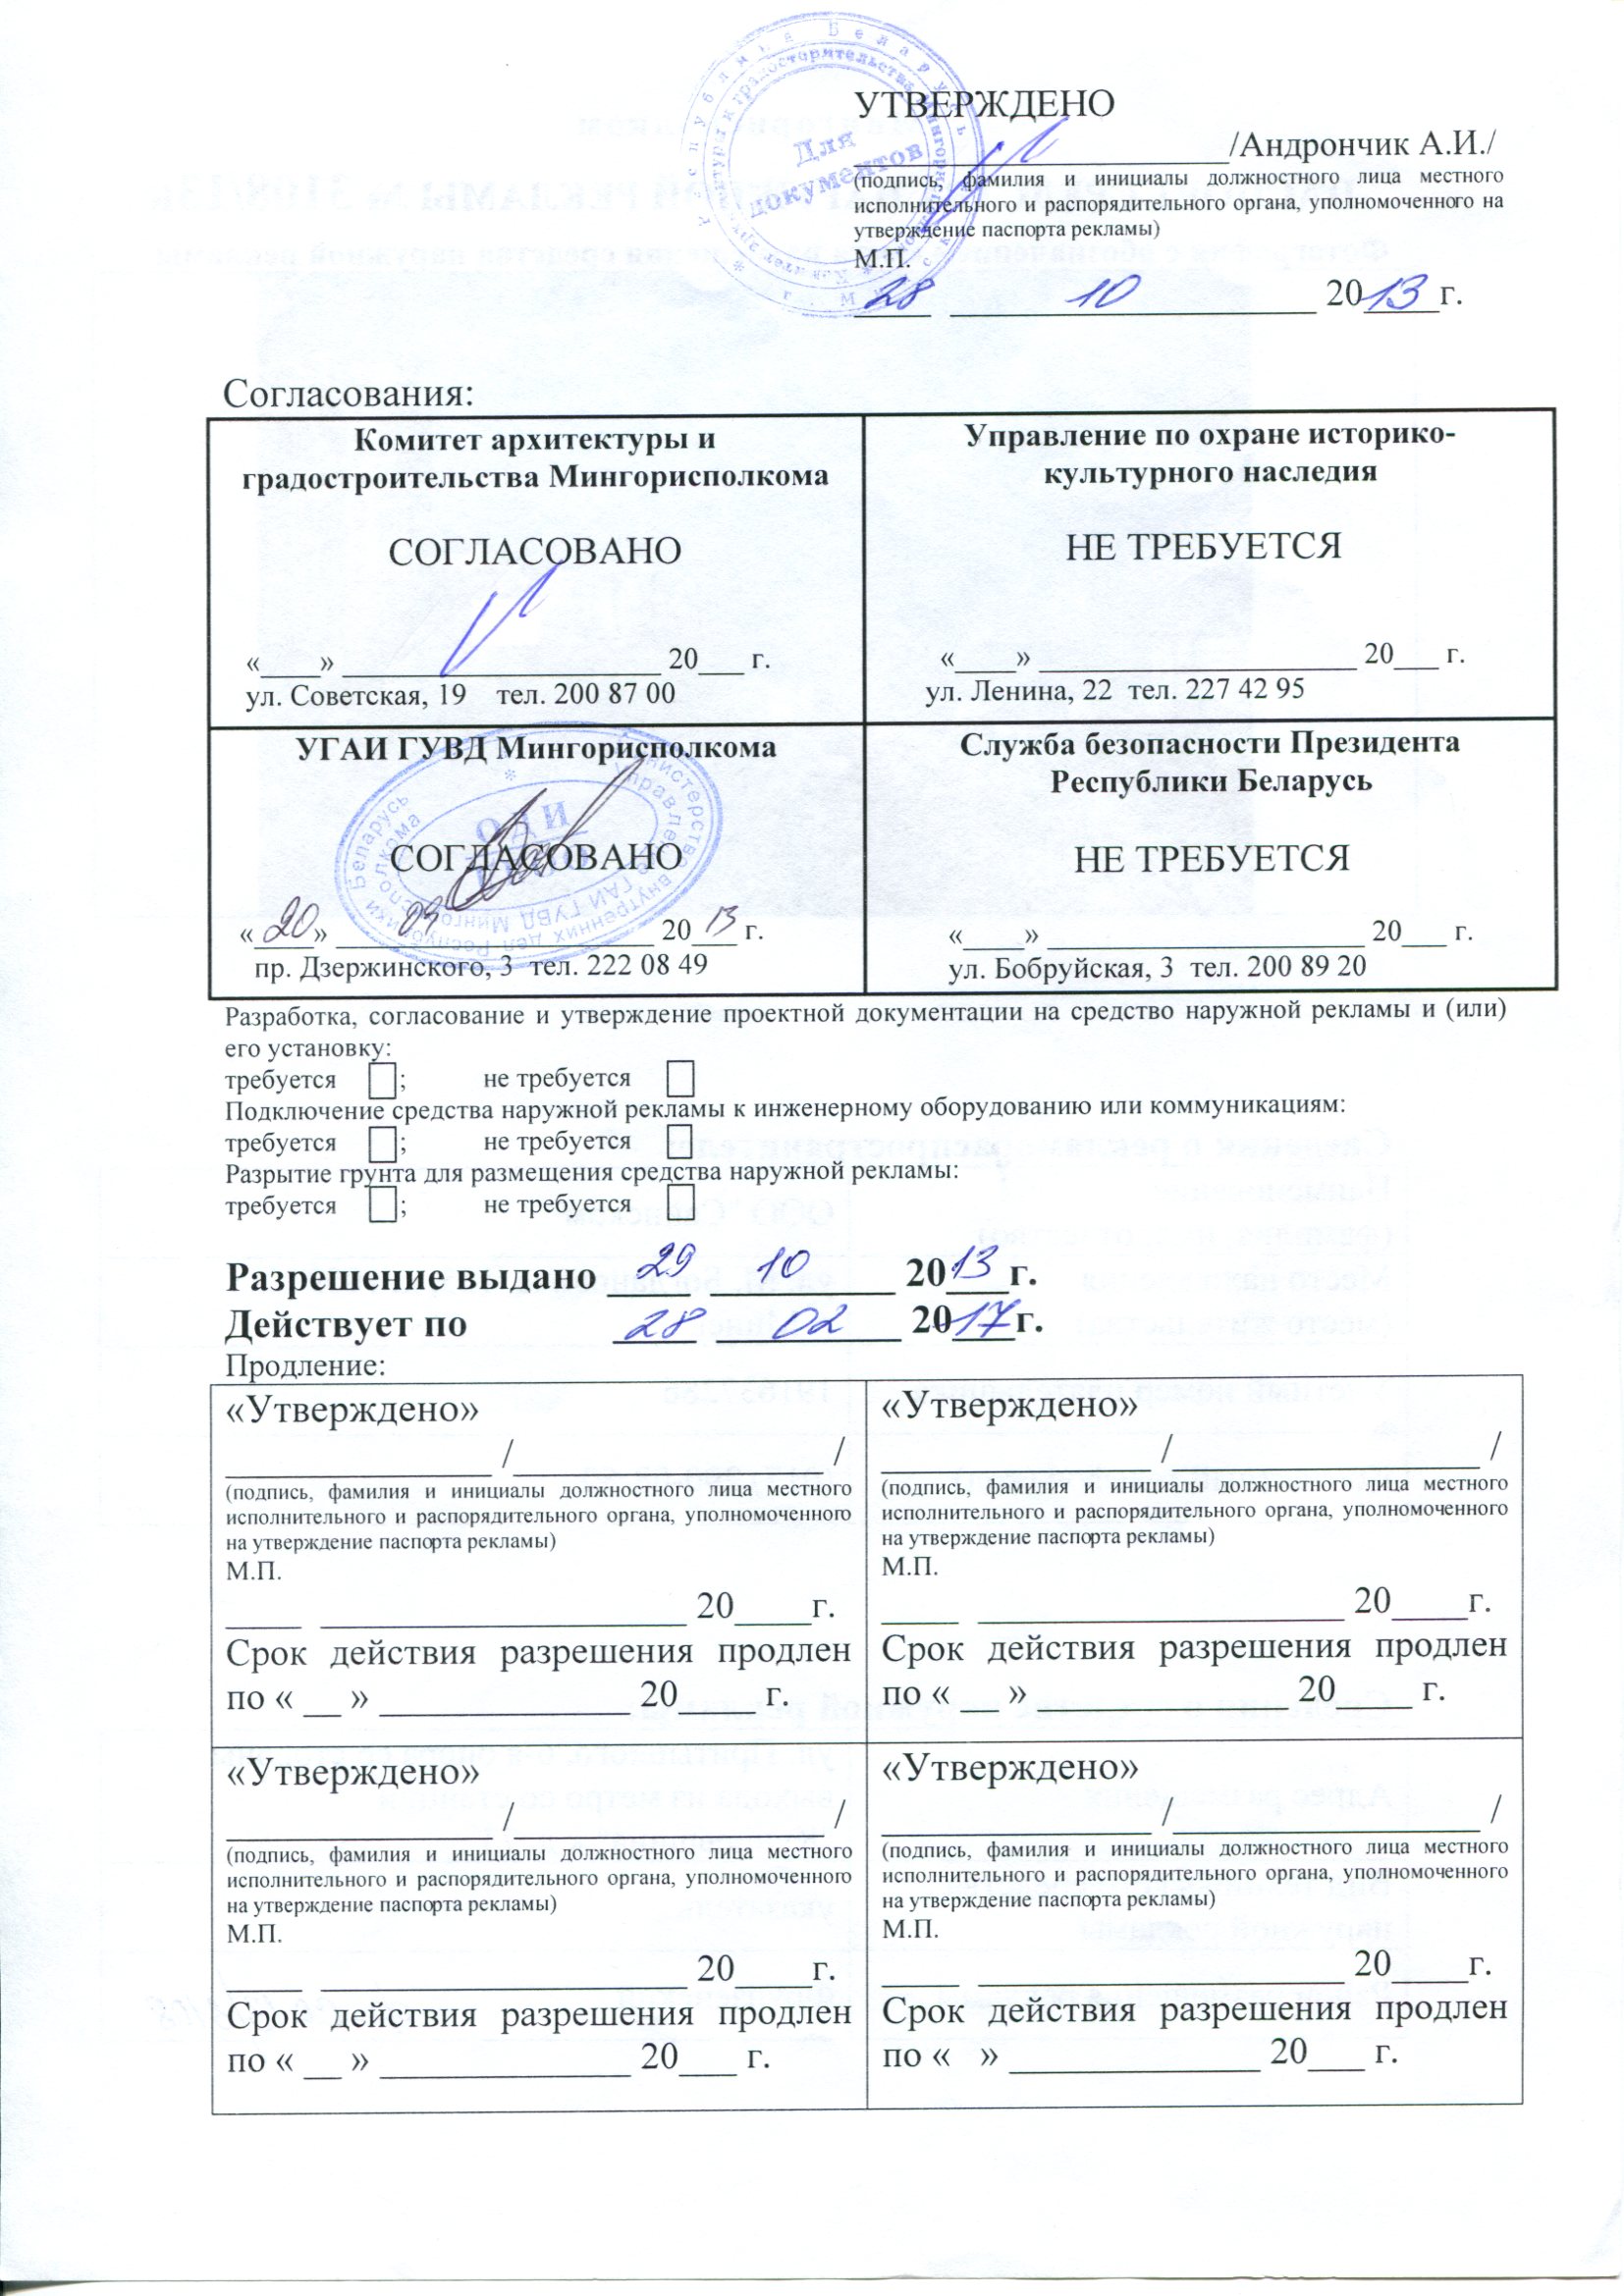 УТВЕРЖДЕНО
____________________/Андрончик А.И./
(подпись, фамилия и инициалы должностного лица местного
исполнительного и распорядительного органа, уполномоченного на
утверждение паспорта рекламы)
М.П.
28 10 2013 г.
Для
документов
Согласования:
Комитет архитектуры и
градостроительства Мингорисполкома
СОГЛАСОВАНО
«____» _____________________ 20___ г.
ул. Советская, 19 тел. 200 87 00
Управление по охране историко-
культурного наследия
НЕ ТРЕБУЕТСЯ
«____» _____________________ 20___ г.
ул. Ленина, 22 тел. 227 42 95
УГАИ ГУВД Мингорисполкома
СОГЛАСОВАНО
«20» 09 2013 г.
пр. Дзержинского, 3 тел. 222 08 49
Служба безопасности Президента
Республики Беларусь
НЕ ТРЕБУЕТСЯ
«____» _____________________ 20___ г.
ул. Бобруйская, 3 тел. 200 89 20
Разработка, согласование и утверждение проектной документации на средство наружной рекламы и (или)
его установку:
требуется ; не требуется
Подключение средства наружной рекламы к инженерному оборудованию или коммуникациям:
требуется ; не требуется
Разрытие грунта для размещения средства наружной рекламы:
требуется ; не требуется
Разрешение выдано 29 10 2013 г.
Действует по 28 02 2017 г.
Продление:
«Утверждено»
______________ /________________ /
(подпись, фамилия и инициалы должностного лица местного
исполнительного и распорядительного органа, уполномоченного
на утверждение паспорта рекламы)
М.П.
____ ___________________ 20____г.
Срок действия разрешения продлен
по « __ » _____________ 20____ г.
«Утверждено»
______________ /________________ /
(подпись, фамилия и инициалы должностного лица местного
исполнительного и распорядительного органа, уполномоченного
на утверждение паспорта рекламы)
М.П.
____ ___________________ 20____г.
Срок действия разрешения продлен
по « __ » _____________ 20____ г.
«Утверждено»
______________ /________________ /
(подпись, фамилия и инициалы должностного лица местного
исполнительного и распорядительного органа, уполномоченного
на утверждение паспорта рекламы)
М.П.
____ ___________________ 20____г.
Срок действия разрешения продлен
по « __ » _____________ 20___ г.
«Утверждено»
______________ /________________ /
(подпись, фамилия и инициалы должностного лица местного
исполнительного и распорядительного органа, уполномоченного
на утверждение паспорта рекламы)
М.П.
____ ___________________ 20____г.
Срок действия разрешения продлен
по « » _____________ 20___ г.